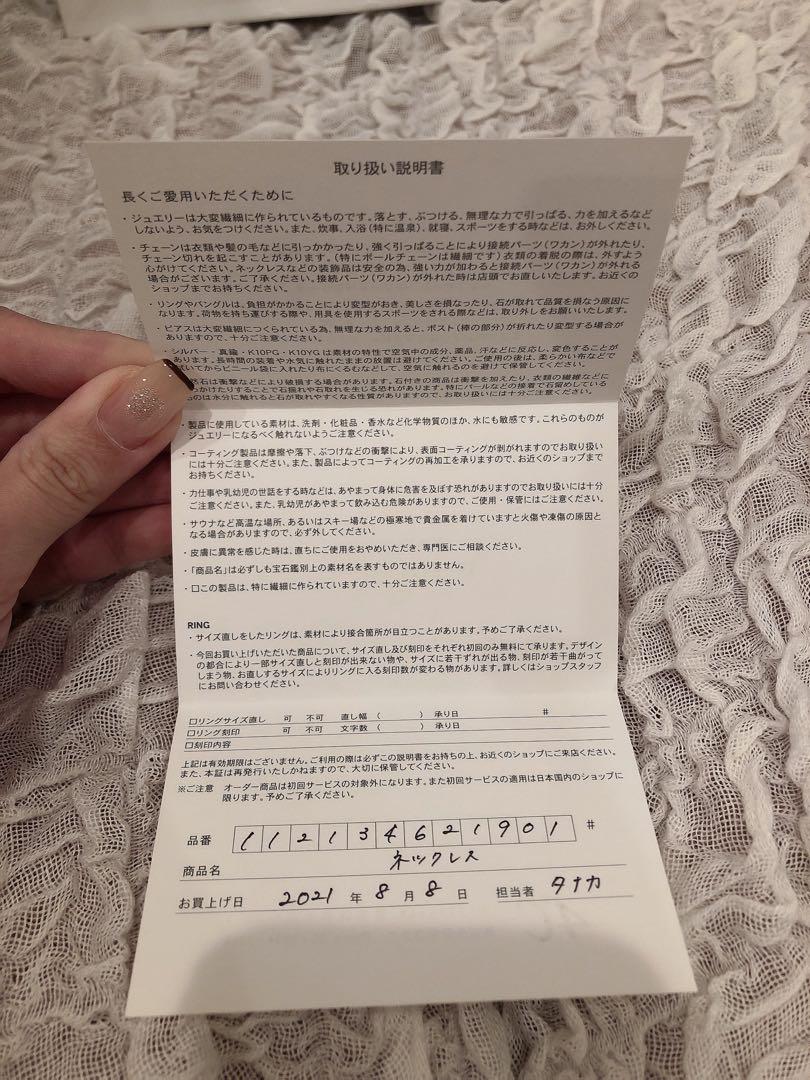 取り扱い説明書
長くご愛用いただくために
・ジュエリーは大変繊細に作られているものです。落とす、ぶつける、無理な力で引っぱる、力を加えるなど
しないよう、お気をつけください。また、炊事、入浴（特に温泉）、就寝、スポーツをする時などは、お外しください。
・チェーンは衣類や髪の毛などに引っかかったり、強く引っぱることにより接続パーツ（ワカン）が外れたり、
チェーン切れを起こすことがあります。（特にボールチェーンは繊細です）衣類の着脱の際は、外すよう
心がけてください。ネックレスなどの装飾品は安全の為、強い力が加わると接続パーツ（ワカン）が外れる
場合がございます。ご了承ください。接続パーツ（ワカン）が外れた時は店頭でお直しいたします。お近くの
ショップまでお持ちください。
・リングやバングルは、負担がかかることにより変形がおき、美しさを損なったり、石が取れて品質を損なう原因に
なります。荷物を持ち運びする際や、用具を使用するスポーツをされる際などは、取り外しをお願いいたします。
・ピアスは大変繊細につくられている為、無理な力を加えると、ポスト（棒の部分）が折れたり変型する場合が
ありますので、十分ご注意ください。
・シルバー・真鍮・K10PG・K10YGは素材の特性で空気中の成分、薬品、汗などに反応し、変色することが
あります。長時間の装着や水気に触れたままの放置は避けてください。ご使用の後は、柔らかい布などで
いてからビニール袋に入れたり布にくるむなどして、空気に触れるのを避けて保管してください。
石は衝撃などにより破損する場合があります。石付きの商品は衝撃を加えたり、衣類の繊維などに
っかけたりすることで石揺れや石取れを生じる恐れがあります。特にパールなどの接着で石留めしている
ものは水分に触れると石が取れやすくなる性質がありますので、お取り扱いには十分ご注意ください。
・製品に使用している素材は、洗剤・化粧品・香水など化学物質のほか、水にも敏感です。これらのものが
ジュエリーになるべく触れないようご注意ください。
・コーティング製品は摩擦や落下、ぶつけなどの衝撃により、表面コーティングが剥がれますのでお取り扱い
には十分ご注意ください。また、製品によってコーティングの再加工を承りますので、お近くのショップまで
お持ちください。
・力仕事や乳幼児の世話をする時などは、あやまって身体に危害を及ぼす恐れがありますのでお取り扱いには十分
ご注意ください。また、乳幼児があやまって飲み込む危険がありますので、ご使用・保管にはご注意ください。
・サウナなど高温な場所、あるいはスキー場などの極寒地で貴金属を着けていますと火傷や凍傷の原因と
なる場合がありますので、必ず外してください。
・皮膚に異常を感じた時は、直ちにご使用をおやめいただき、専門医にご相談ください。
・「商品名」は必ずしも宝石鑑別上の素材名を表すものではありません。
・□この製品は、特に繊細に作られていますので、十分ご注意ください。
RING
・サイズ直しをしたリングは、素材により接合箇所が目立つことがあります。予めご了承ください。
・今回お買い上げいただいた商品について、サイズ直し及び刻印をそれぞれ初回のみ無料にて承ります。デザイン
の都合により一部サイズ直しと刻印が出来ない物や、サイズに若干ずれが出る物、刻印が若干曲がって
しまう物、お直しするサイズによりリングに入る刻印数が変わる物があります。詳しくはショップスタッフ
にお問い合わせください。
□リングサイズ直し 可 不可 直し幅（ ） 承り日 #
□リング刻印 可 不可 文字数（ ） 承り日
□刻印内容
上記は有効期限はございません。ご利用の際は必ずこの説明書をお持ちの上、お近くのショップにご来店ください。
また、本証は再発行いたしかねますので、大切に保管してください。
※ご注意 オーダー商品は初回サービスの対象外になります。また初回サービスの適用は日本国内のショップに
限ります。予めご了承ください。
品番 112134621901 #
商品名 ネックレス
お買上げ日 2021 年 8 月 8 日 担当者 タナカ